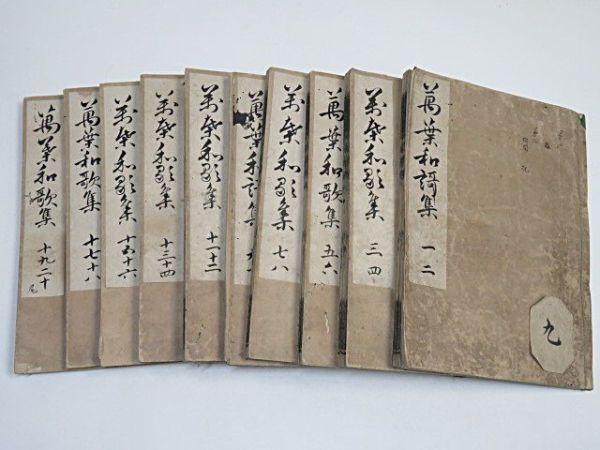 萬葉和謌集 一二
萬葉和歌集 三四
萬葉和歌集 五六
萬葉和歌集 七八
萬葉和謌集 九十
萬葉和歌集 十一十二
萬葉和歌集 十三十四
萬葉和歌集 十五十六
萬葉和歌集 十七十八
萬葉和歌集 十九二十
尾
九